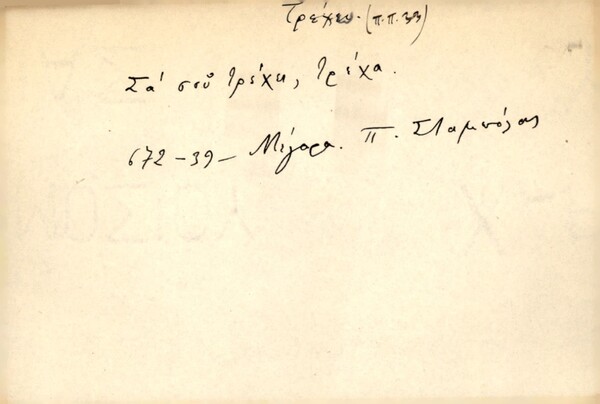 Τρέχει. (π.π. 33)
Σά σοῦ τρέχει, τρέχα.
672-39- Μέγαρα. Π. Σταμπόλας